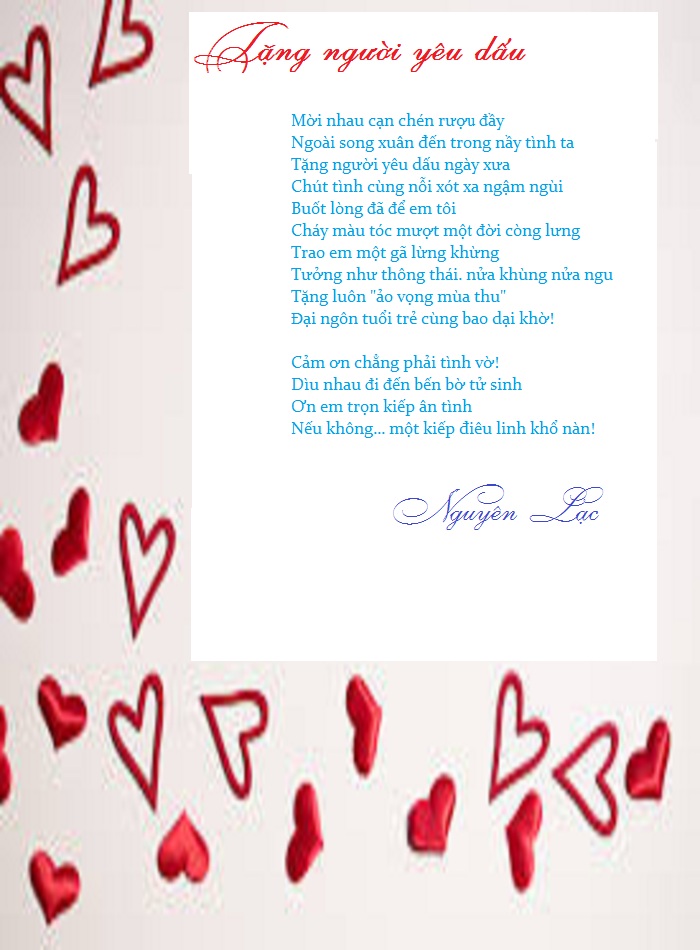 Tặng người yêu dấu
Mời nhau cạn chén rượu đầy
Ngoài song xuân đến trong nầy tình ta
Tặng người yêu dấu ngày xưa
Chút tình cùng nỗi xót xa ngậm ngùi
Buốt lòng đã để em tôi
Cháy màu tóc mượt một đời còng lưng
Trao em một gã lừng khừng
Tưởng như thông thái. nửa khùng nửa ngu
Tặng luôn "ảo vọng mùa thu"
Đại ngôn tuổi trẻ cùng bao dại khờ!
Cảm ơn chẳng phải tình vờ!
Dìu nhau đi đến bến bờ tử sinh
Ơn em trọn kiếp ân tình
Nếu không... một kiếp điêu linh khổ nàn!
Nguyên Lạc